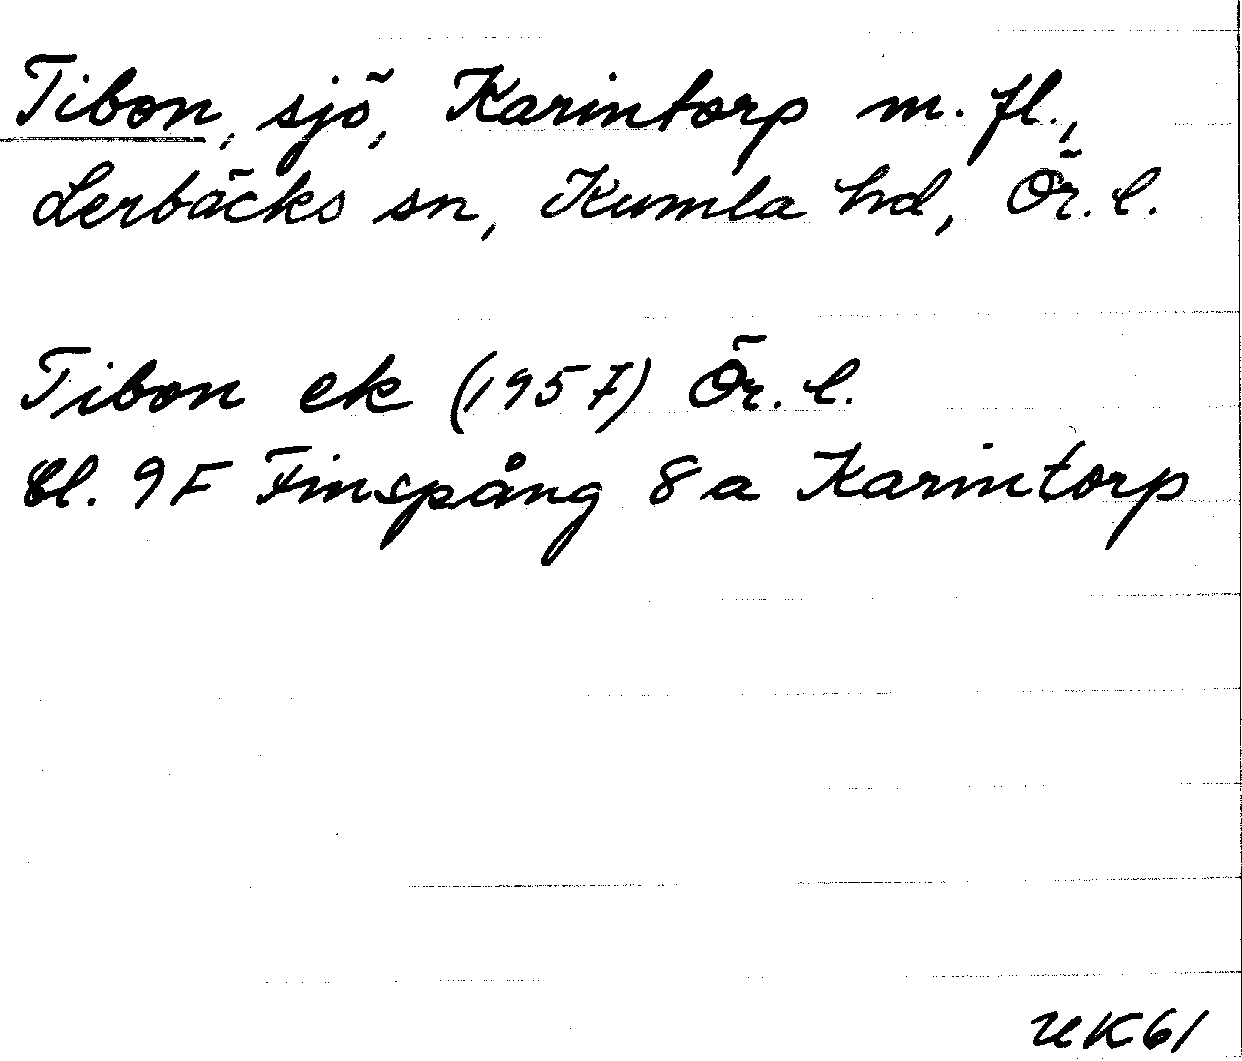 Tibon, sjö, Karintorp m. fl.,
Lerbäcks sn, Kumla hd, Ör. l.
Tibon ek (1957) Ör. l.
bl. 9F Finspång 8 a Karintorp
UK61